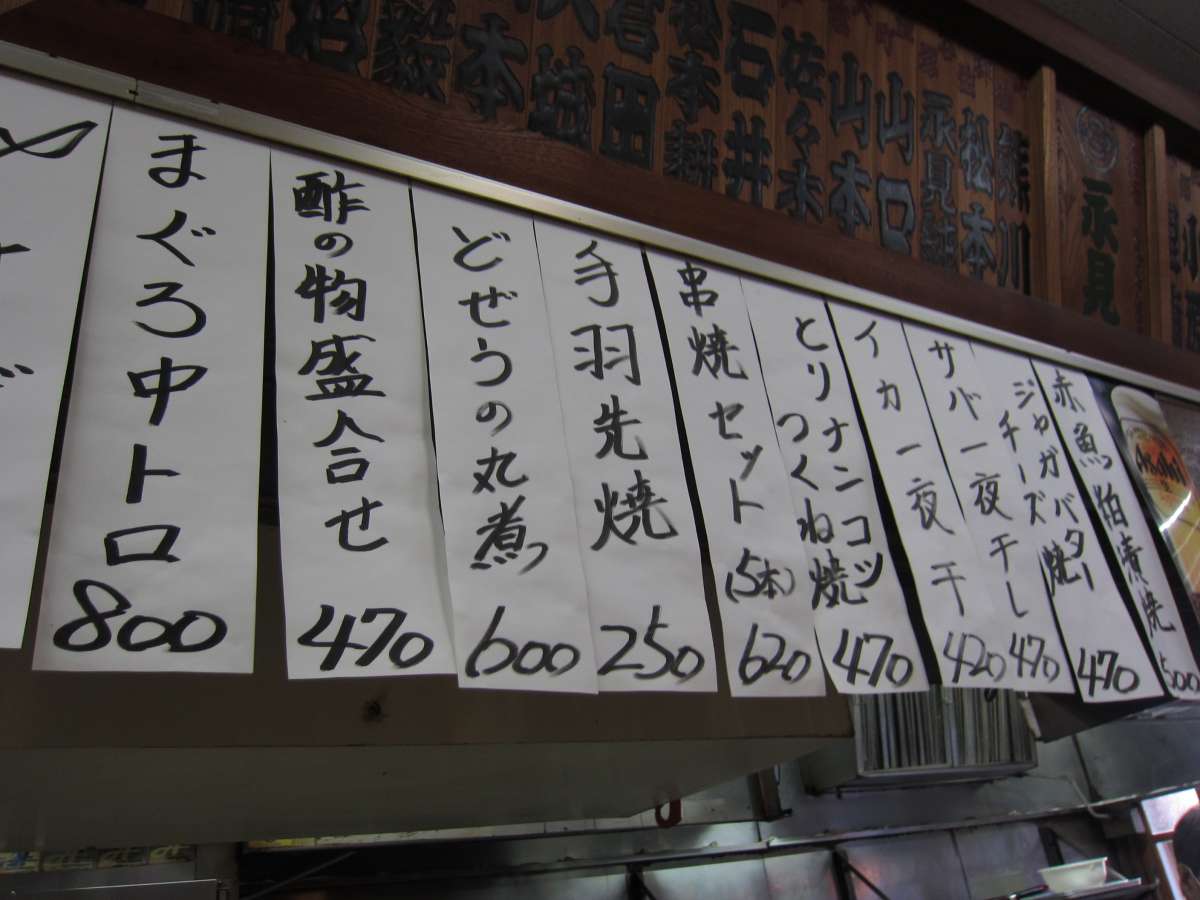 まぐろ中トロ
800
酢の物盛合せ
470
どぜうの丸煮
600
手羽先焼
250
串焼セット(5本)
620
とりナンコツ
つくね焼
470
イカ一夜干
420
サバ一夜干し
470
ジャガバター
チーズ焼
470
赤魚粕漬焼
500
Asahi
本
倉田
松本耕
石井
佐々木
山本
山口
永見
松本
熊川
永見